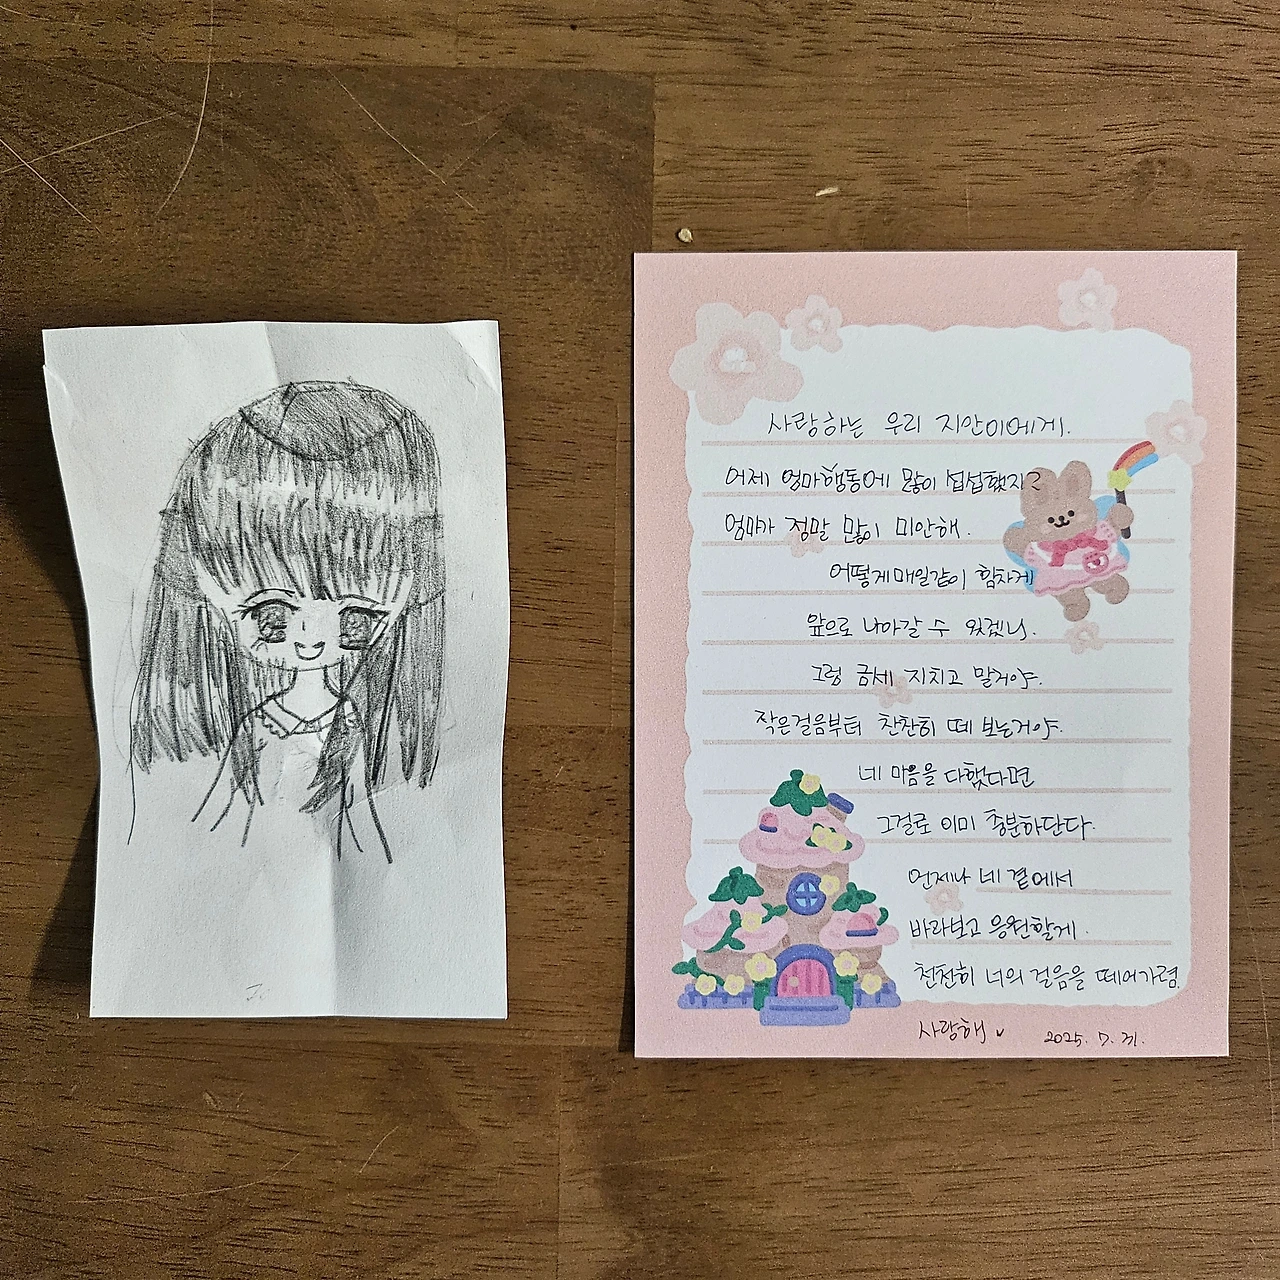 사랑하는 우리 지안이에게.
어제 엄마행동에 많이 섭섭했지?
엄마가 정말 많이 미안해.
어떻게매일같이 힘차게
앞으로 나아갈 수 있겠니.
그럼 금세 지치고 말거야.
작은걸음부터 찬찬히 떼 보는거야.
네 마음을 다했다면
그걸로 이미 충분하단다.
언제나 네 곁에서
바라보고 응원할게.
천천히 너의 걸음을 떼어가렴.
사랑해
2025. 7. 31.